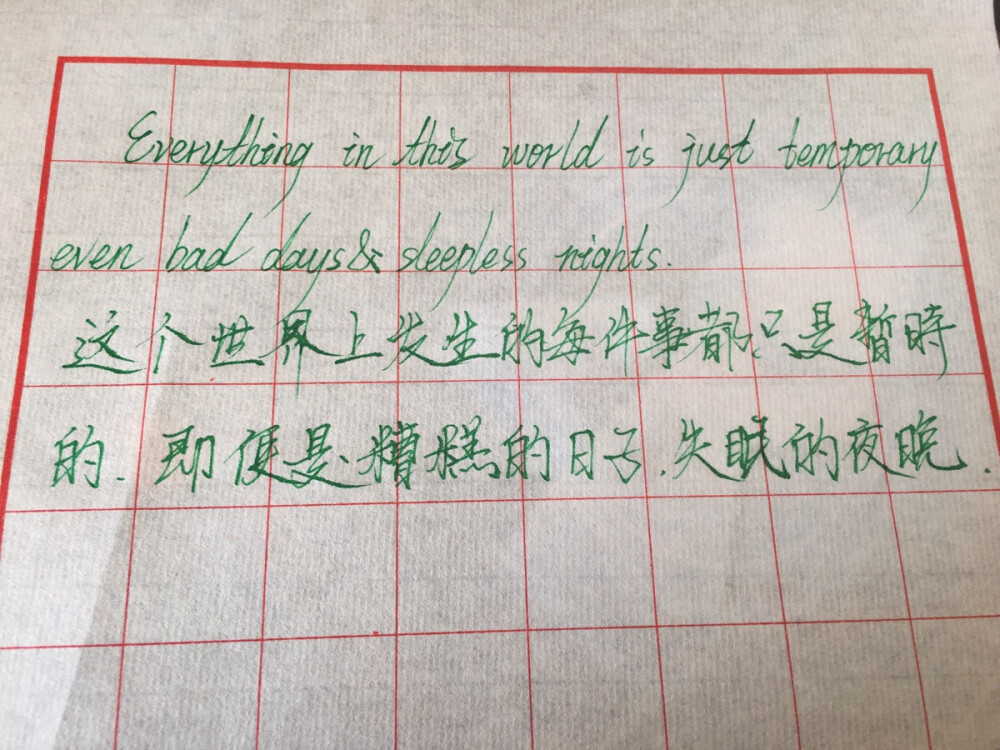 Everything in this world is just temporary
even bad days & sleepless nights.
这个世界上发生的每件事都只是暂時
的.即便是糟糕的日子.失眠的夜晚.